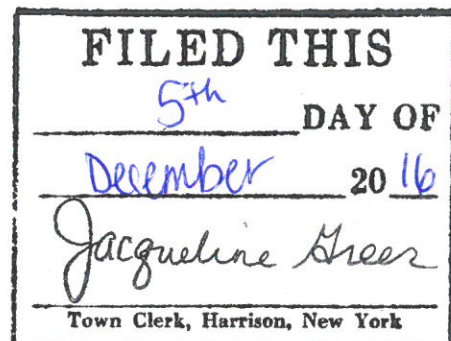 FILED THIS
5th DAY OF
December 20 16
Jacqueline Greer
Town Clerk, Harrison, New York